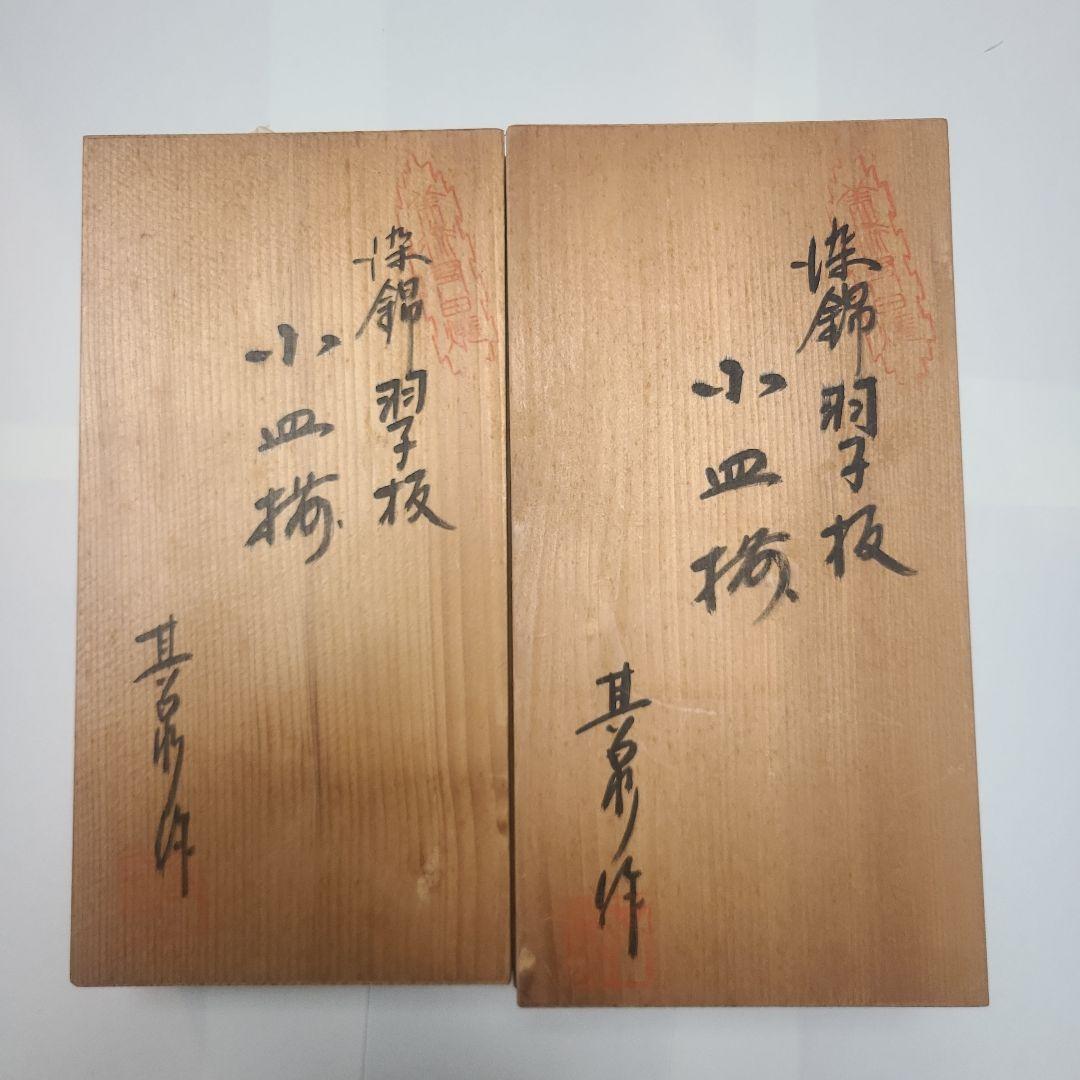 染錦 羽子板
小皿揃
其泉作
染錦 羽子板
小皿揃
其泉作